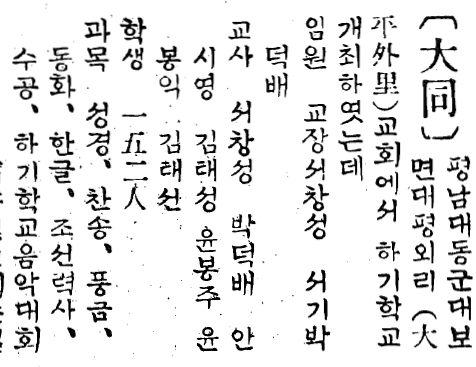 〔大同〕 평남대동군대보
면대평외리 (大
平外里)교회에서 하기학교
개최하엿는데
임원 교장서창성 서기박
덕배
교사 서창성 박덕배 안
시영 김태성 윤봉주 윤
봉익 김태선
학생 一五二人
과목 성경、찬송、풍금、
동화、한글、조선력사、
수공、하기학교음악대회